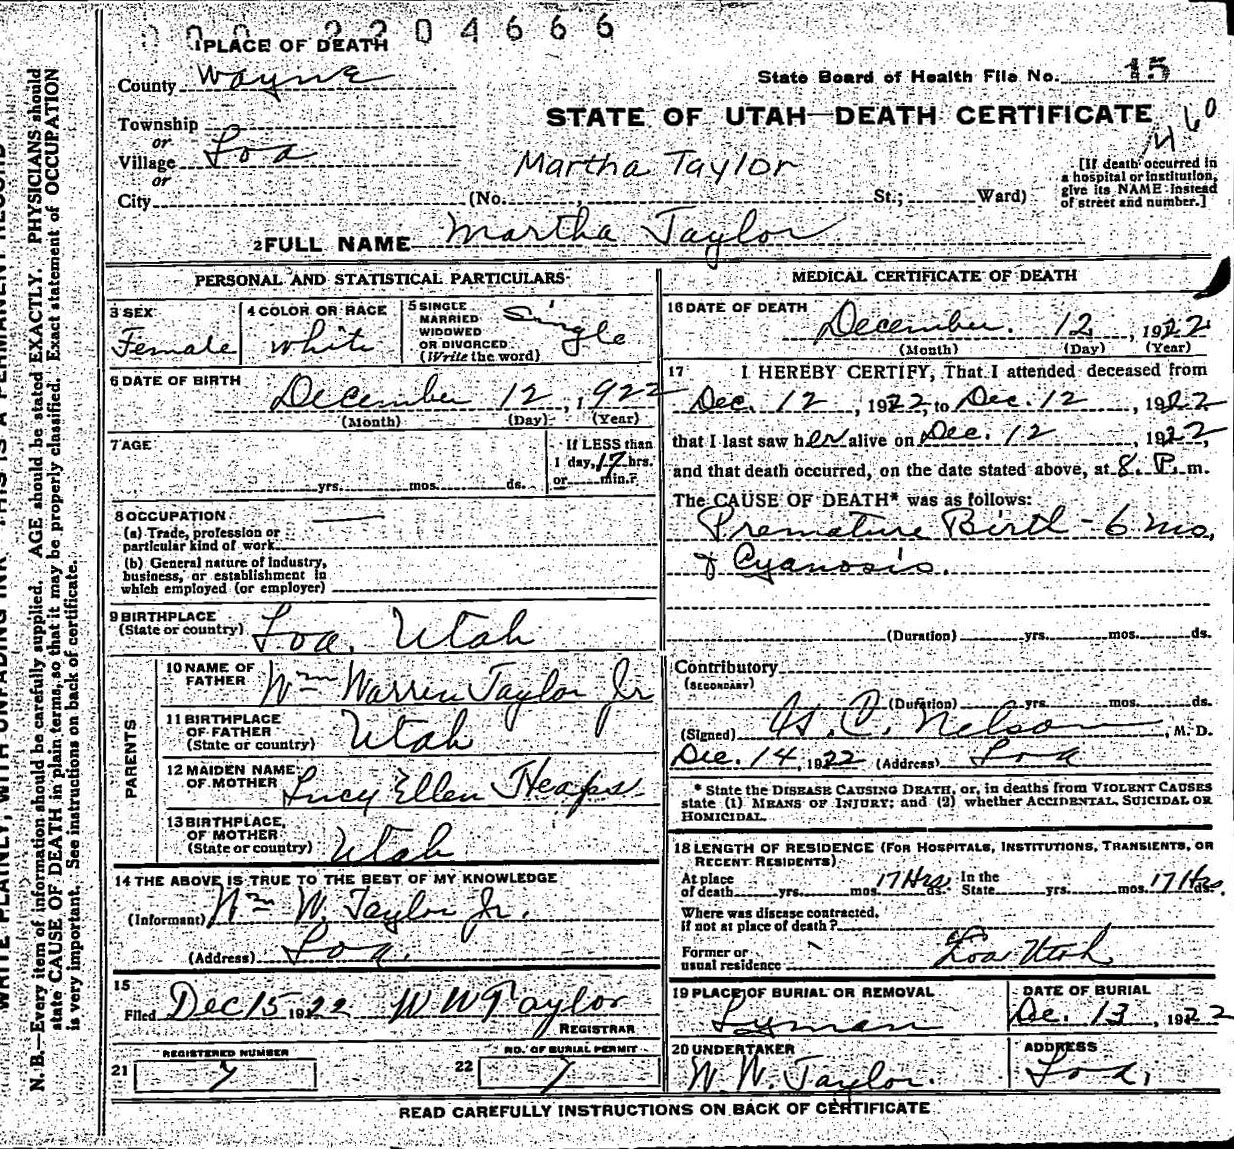 0 0 0 2 2 0 4 6 6 6
1 PLACE OF DEATH
County Wayne
State Board of Health File No. 15
Township
or
Village Loa
or
City
STATE OF UTAH—DEATH CERTIFICATE
460
Martha Taylor
(No. , St.; Ward)
[If death occurred in
a hospital or institution,
give its NAME instead
of street and number.]
2 FULL NAME Martha Taylor
PERSONAL AND STATISTICAL PARTICULARS
3 SEX
Female
4 COLOR OR RACE
White
5 SINGLE
MARRIED
WIDOWED
OR DIVORCED
(Write the word)
Single
6 DATE OF BIRTH
December 12, 1922
(Month) (Day) (Year)
7 AGE
yrs. mos. ds.
If LESS than
1 day, 17 hrs.
or min.?
8 OCCUPATION
(a) Trade, profession or
particular kind of work
(b) General nature of industry,
business, or establishment in
which employed (or employer)
9 BIRTHPLACE
(State or country) Loa, Utah
PARENTS
10 NAME OF
FATHER Wm Warren Taylor Jr
11 BIRTHPLACE
OF FATHER
(State or country) Utah
12 MAIDEN NAME
OF MOTHER Lucy Ellen Heaps
13 BIRTHPLACE
OF MOTHER
(State or country) Utah
14 THE ABOVE IS TRUE TO THE BEST OF MY KNOWLEDGE
(Informant) Wm W. Taylor Jr.
(Address) Loa.
15
Filed Dec 15 1922 W W Taylor
REGISTRAR
REGISTERED NUMBER
21 7
NO. OF BURIAL PERMIT
22 7
MEDICAL CERTIFICATE OF DEATH
16 DATE OF DEATH
December. 12, 1922
(Month) (Day) (Year)
17 I HEREBY CERTIFY, That I attended deceased from
Dec. 12, 1922, to Dec. 12, 1922
that I last saw her alive on Dec. 12, 1922,
and that death occurred, on the date stated above, at 8. P. m.
The CAUSE OF DEATH* was as follows:
Premature Birth - 6 mo,
& Cyanosis.
(Duration) yrs. mos. ds.
Contributory
(SECONDARY)
(Duration) yrs. mos. ds.
(Signed) H. C. Nelson, M. D.
Dec. 14, 1922 (Address) Loa
* State the DISEASE CAUSING DEATH, or, in deaths from VIOLENT CAUSES
state (1) MEANS OF INJURY; and (2) whether ACCIDENTAL, SUICIDAL OR
HOMICIDAL.
18 LENGTH OF RESIDENCE (FOR HOSPITALS, INSTITUTIONS, TRANSIENTS, OR
RECENT RESIDENTS)
At place
of death yrs. mos. 17 Hrs. ds.
In the
State yrs. mos. 17 Hrs. ds.
Where was disease contracted,
if not at place of death?
Former or
usual residence Loa Utah
19 PLACE OF BURIAL OR REMOVAL
Lyman
DATE OF BURIAL
Dec. 13, 1922
20 UNDERTAKER
W. W. Taylor.
ADDRESS
Loa,
READ CAREFULLY INSTRUCTIONS ON BACK OF CERTIFICATE
WRITE PLAINLY, WITH UNFADING INK—THIS IS A PERMANENT RECORD
N. B.—Every item of information should be carefully supplied. AGE should be stated EXACTLY. PHYSICIANS should
state CAUSE OF DEATH in plain terms, so that it may be properly classified. Exact statement of OCCUPATION
is very important. See instructions on back of certificate.